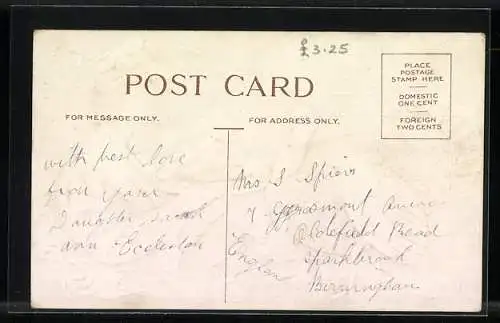 £3.25
POST CARD
PLACE
POSTAGE
STAMP HERE
DOMESTIC
ONE CENT
FOREIGN
TWO CENTS
FOR MESSAGE ONLY.
FOR ADDRESS ONLY.
with best love
from your
Daughter Sarah
ann Eccleston
Mrs S Spiers
7
Road
Sparkbrook
Birmingham
England